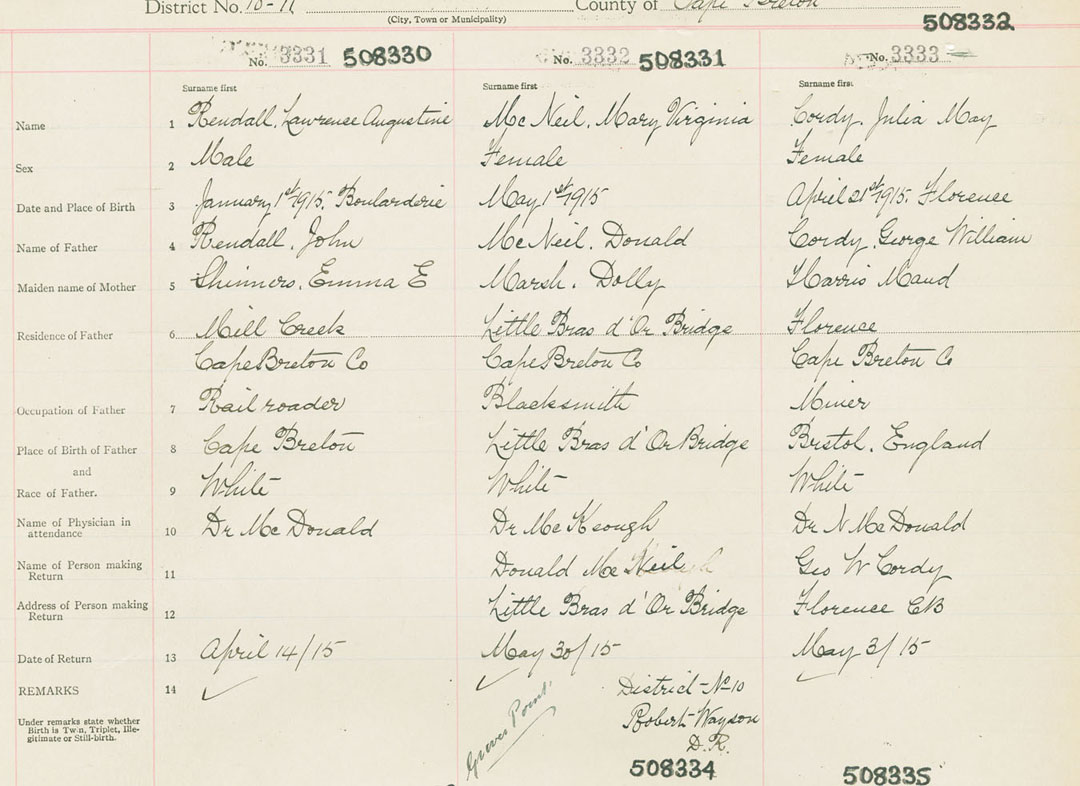 District No. 10-11 County of Cape Breton
(City, Town or Municipality)
508332
No. 3331 508330 No. 3332 508331 No. 3333
Surname first Surname first Surname first
Name 1 Rendall, Lawrence Augustine McNeil, Mary Virginia Cordy, Julia May
Sex 2 Male Female Female
Date and Place of Birth 3 January 1st 1915, Boularderie May 1st 1915 April 21st 1915, Florence
Name of Father 4 Rendall, John McNeil, Donald Cordy, George William
Maiden name of Mother 5 Shinners, Emma E Marsh, Dolly Harris Maud
Residence of Father 6 Mill Creek Little Bras d'Or Bridge Florence
Cape Breton Co Cape Breton Co Cape Breton Co
Occupation of Father 7 Railroader Blacksmith Miner
Place of Birth of Father 8 Cape Breton Little Bras d'Or Bridge Bristol, England
and
Race of Father. 9 White White White
Name of Physician in attendance 10 Dr McDonald Dr McKeough Dr N McDonald
Name of Person making Return 11 Donald McNeil Geo W Cordy
Address of Person making Return 12 Little Bras d'Or Bridge Florence CB
Date of Return 13 April 14/15 May 30/15 May 3/15
REMARKS 14 District No 10
Under remarks state whether Birth is Twin, Triplet, Illegitimate or Still-birth.
Robert Wayson
D.R.
Point
508334 508335